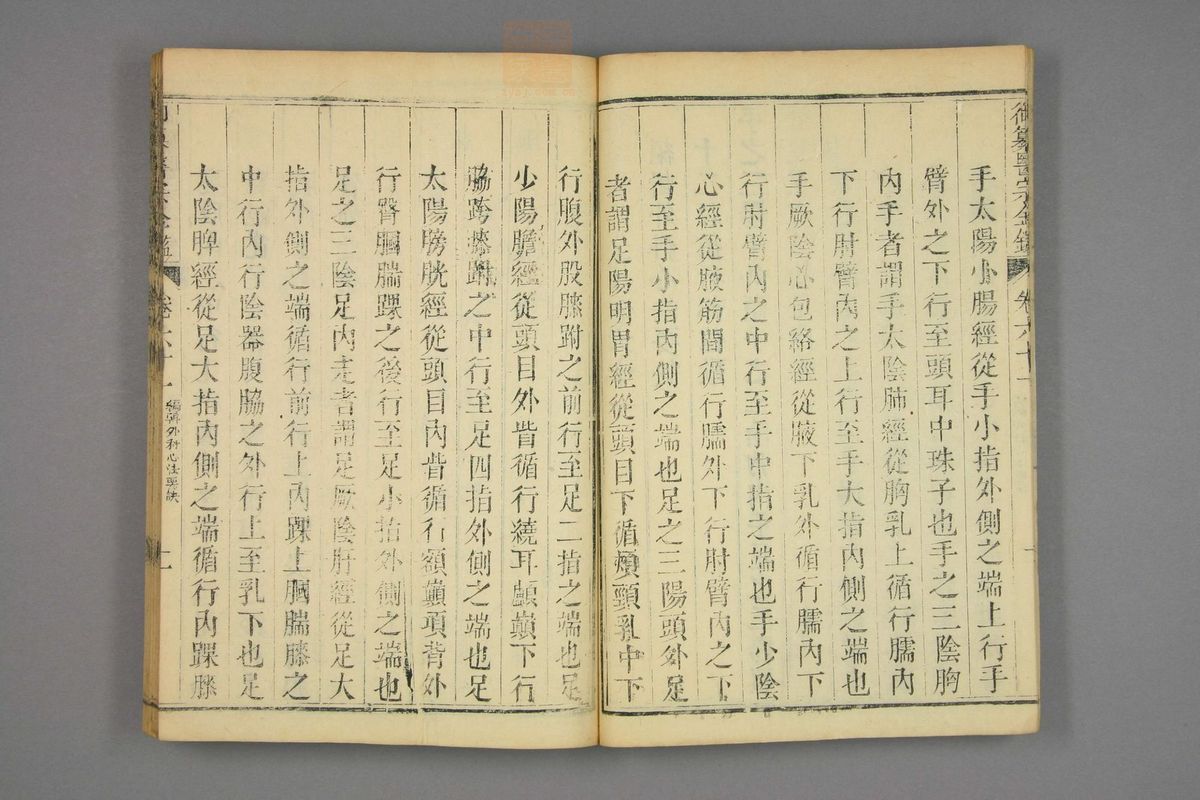 御纂醫宗金鑑 卷六十一
手太陽小腸經從手小指外側之端上行手
臂外之下行至頭耳中珠子也手之三陰胸
內手者謂手太陰肺經從胸乳上循行臑內
下行肘臂內之上行至手大指內側之端也
手厥陰心包絡經從腋下乳外循行臑內下
行肘臂內之中行至手中指之端也手少陰
心經從腋筋間循行臑外下行肘臂內之下
行至手小指內側之端也足之三陽頭外足
者謂足陽明胃經從頭目下循頰頸乳中下
行腹外股膝跗之前行至足二指之端也足
少陽膽經從頭目外眥循行繞耳顱巔下行
脇跨膝跗之中行至足四指外側之端也足
太陽膀胱經從頭目內眥循行額巔項背外
行臀膕腨踝之後行至足小指外側之端也
足之三陰足內走者謂足厥陰肝經從足大
指外側之端循行前行上內踝上膕腨膝之
中行內行陰器腹脇之外行上至乳下也足
太陰脾經從足大指內側之端循行內踝膝
卷六十一 編輯外科心法要訣